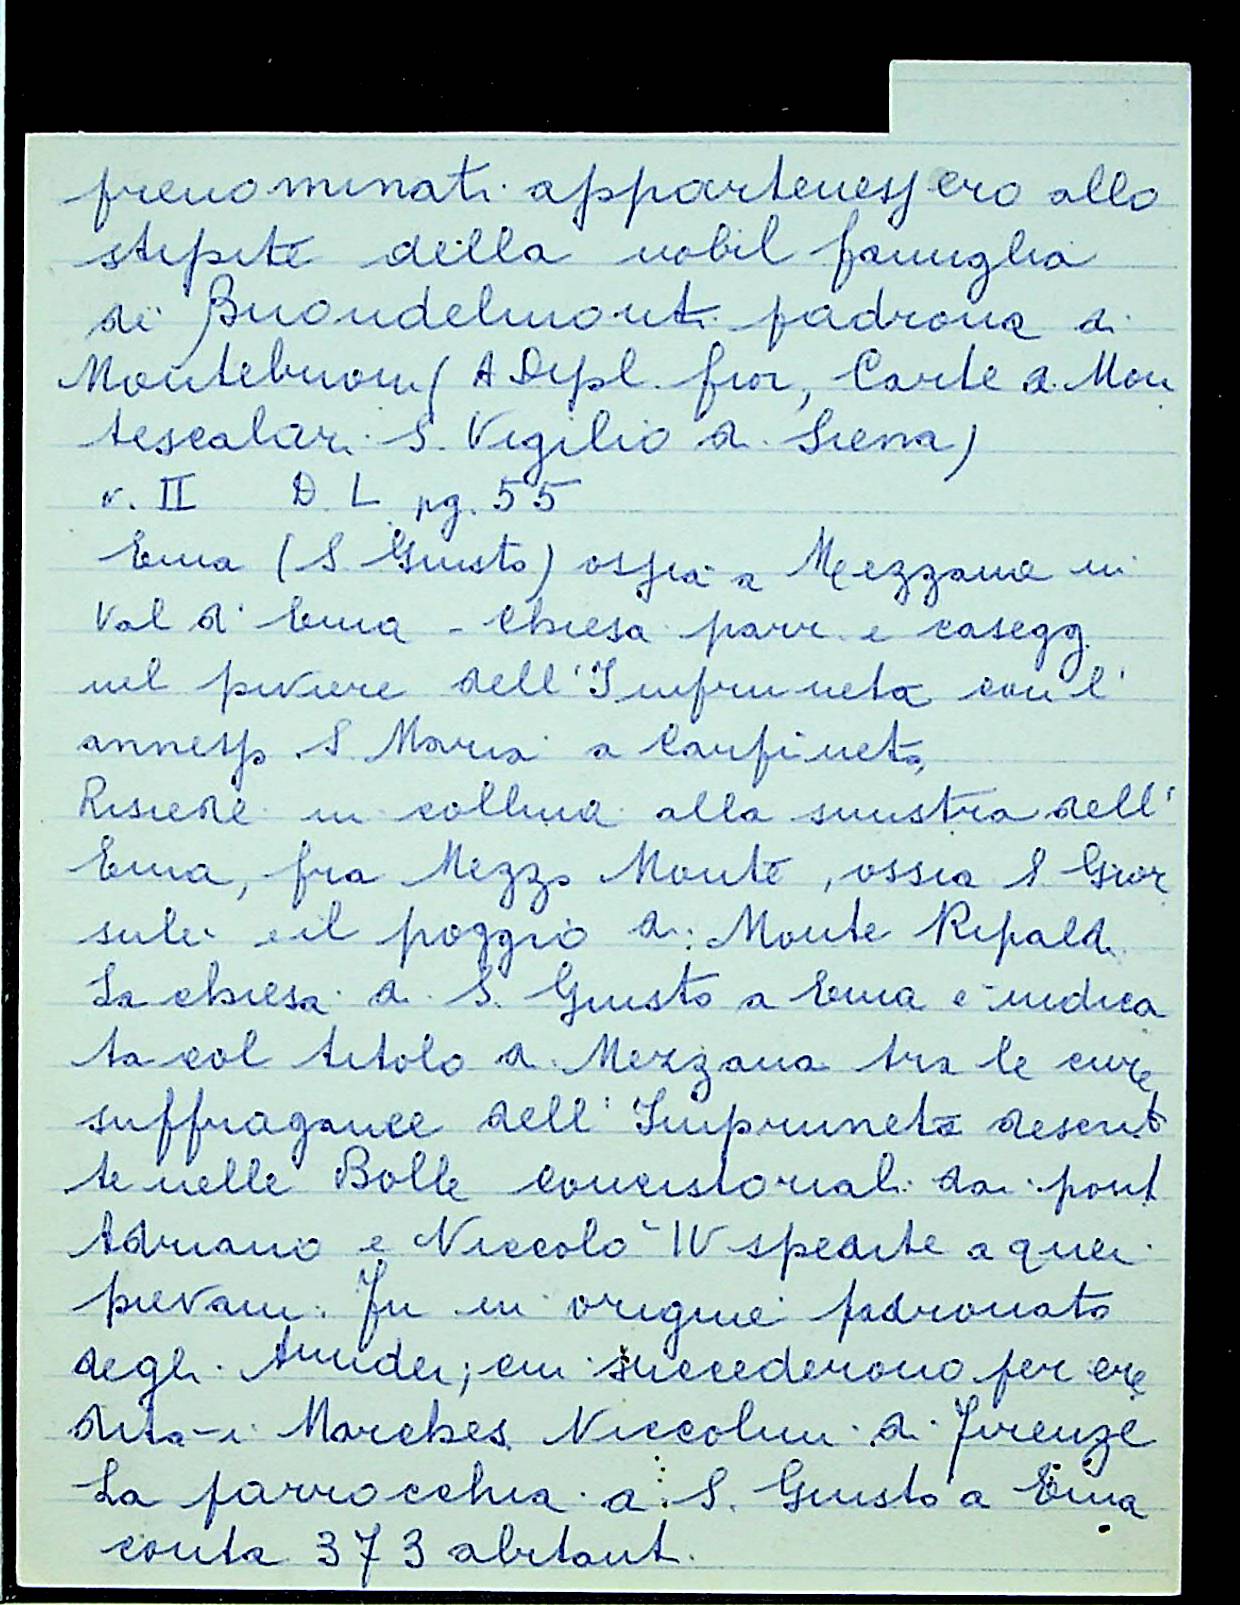 prenominati appartenessero allo
stipite della nobil famiglia
de' Buondelmonti padrona di
Montebuoni (A Dipl. fior, Carte di Mon
tescalari. S. Vigilio di Siena)
v. II D. L pg. 55
Ema (S Giusto) ossia a Mezzana in
Val d'Ema - Chiesa parr. e casegg.
nel piviere dell'Impruneta con l'
annesso S Maria a Carpineto,
Risiede in collina alla sinistra dell'
Ema, fra Mezzo Monte, ossia S Gior
sulè e il poggio di Monte Ripaldi.
La chiesa di S. Giusto a Ema è indica
ta col titolo di Mezzana tra le cure
suffraganee dell'Impruneta descrit
te nelle Bolle concistoriali dai pont
Adriano e Niccolò IV spedite a quei
pievani. Fu in origine padronato
degli Amidei; cui succederono per ere
dità i Marches. Niccolini di Firenze
La parrocchia di S. Giusto a Ema
conta 373 abitant.